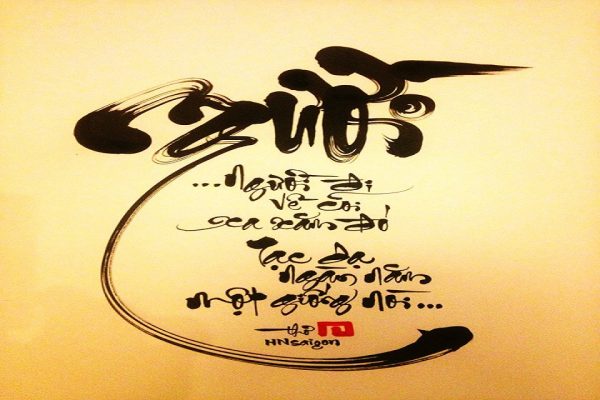 Người
...Người đi
về cõi
xa xăm đó
Tạc dạ
ngàn năm
một giống nòi...
thơ
HNSaigon